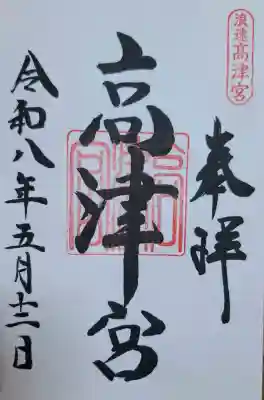 浪速高津宮
奉拝
高津宮
令和八年五月十二日